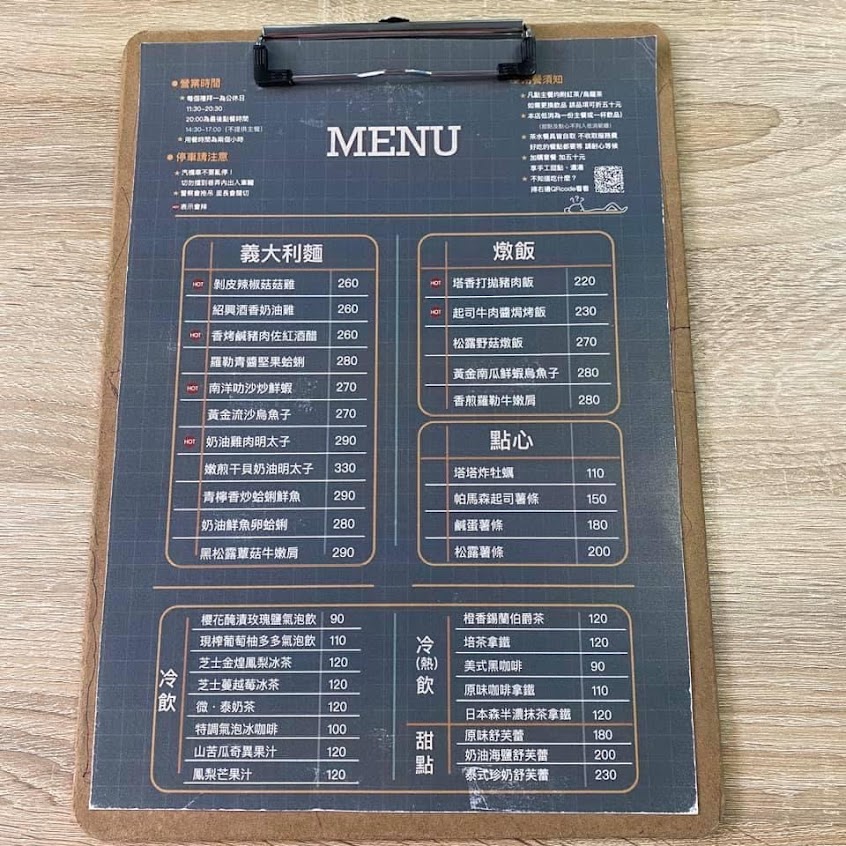 營業時間
★ 每個禮拜一為公休日
11:30~20:30
20:00為最後點餐時間
14:30~17:00 (不提供主餐)
★ 用餐時間為兩個小時
停車請注意
★ 汽機車不要亂停！
切勿擋到巷弄內出入車輛
★ 警察會拖吊 里長會關切
表示會辣
MENU
用餐須知
★ 凡點主餐均附紅茶/烏龍茶
如需更換飲品 該品項可折五十元
★ 本店低消為一份主餐或一杯飲品
(甜點及點心不列入低消範疇)
★ 茶水餐具皆自取 不收取服務費
好吃的餐點都要等 請耐心等候
★ 加購套餐 加五十元
享手工甜點、濃湯
★ 不知道吃什麼？
掃右邊QRcode看看
義大利麵
HOT 剝皮辣椒菇菇雞 260
紹興酒香奶油雞 260
HOT 香烤鹹豬肉佐紅酒醋 260
羅勒青醬堅果蛤蜊 280
HOT 南洋叻沙炒鮮蝦 270
黃金流沙烏魚子 270
HOT 奶油雞肉明太子 290
嫩煎干貝奶油明太子 330
青檸香炒蛤蜊鮮魚 290
奶油鮮魚卵蛤蜊 280
黑松露蕈菇牛嫩肩 290
燉飯
HOT 塔香打拋豬肉飯 220
HOT 起司牛肉醬焗烤飯 230
松露野菇燉飯 270
黃金南瓜鮮蝦烏魚子 280
香煎羅勒牛嫩肩 280
點心
塔塔炸牡蠣 110
帕馬森起司薯條 150
鹹蛋薯條 180
松露薯條 200
冷飲
櫻花醃漬玫瑰鹽氣泡飲 90
現榨葡萄柚多多氣泡飲 110
芝士金煌鳳梨冰茶 120
芝士蔓越莓冰茶 120
微．泰奶茶 120
特調氣泡冰咖啡 100
山苦瓜奇異果汁 120
鳳梨芒果汁 120
冷(熱)飲
橙香錫蘭伯爵茶 120
培茶拿鐵 120
美式黑咖啡 90
原味咖啡拿鐵 110
日本森半濃抹茶拿鐵 120
甜點
原味舒芙蕾 180
奶油海鹽舒芙蕾 200
泰式珍奶舒芙蕾 230